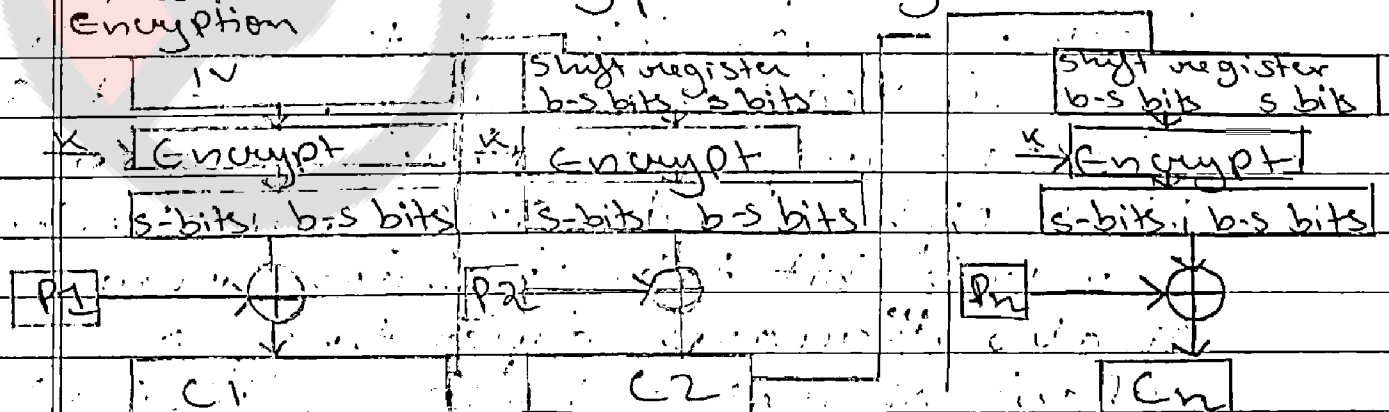 Encryption
IV
Shift register
b-s bits s bits
Shift register
b-s bits s bits
K Encrypt
K Encrypt
K Encrypt
s-bits b-s bits
s-bits b-s bits
s-bits b-s bits
P1
P2
Pn
C1
C2
Cn